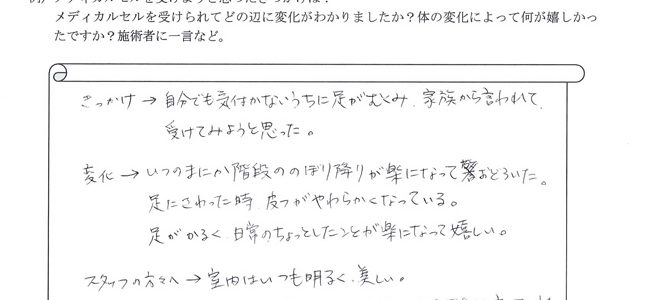 メディカルセルを受けられてどの辺に変化がわかりましたか？体の変化によって何が嬉しかっ
たですか？施術者に一言など。
きっかけ → 自分でも気付かないうちに足がむくみ、家族から言われて、
受けてみようと思った。
変化 → いつのまにか階段ののぼり降りが楽になっておどろいた。
足にさわった時 皮フがやわらかくなっている。
足がかるく、日常のちょっとしたことが楽になって嬉しい。
スタッフの方々へ → 室内はいつも明るく、美しい。